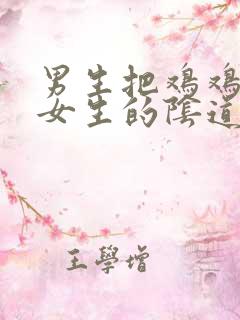 男生把鸡鸡
女生的陰道
王學增